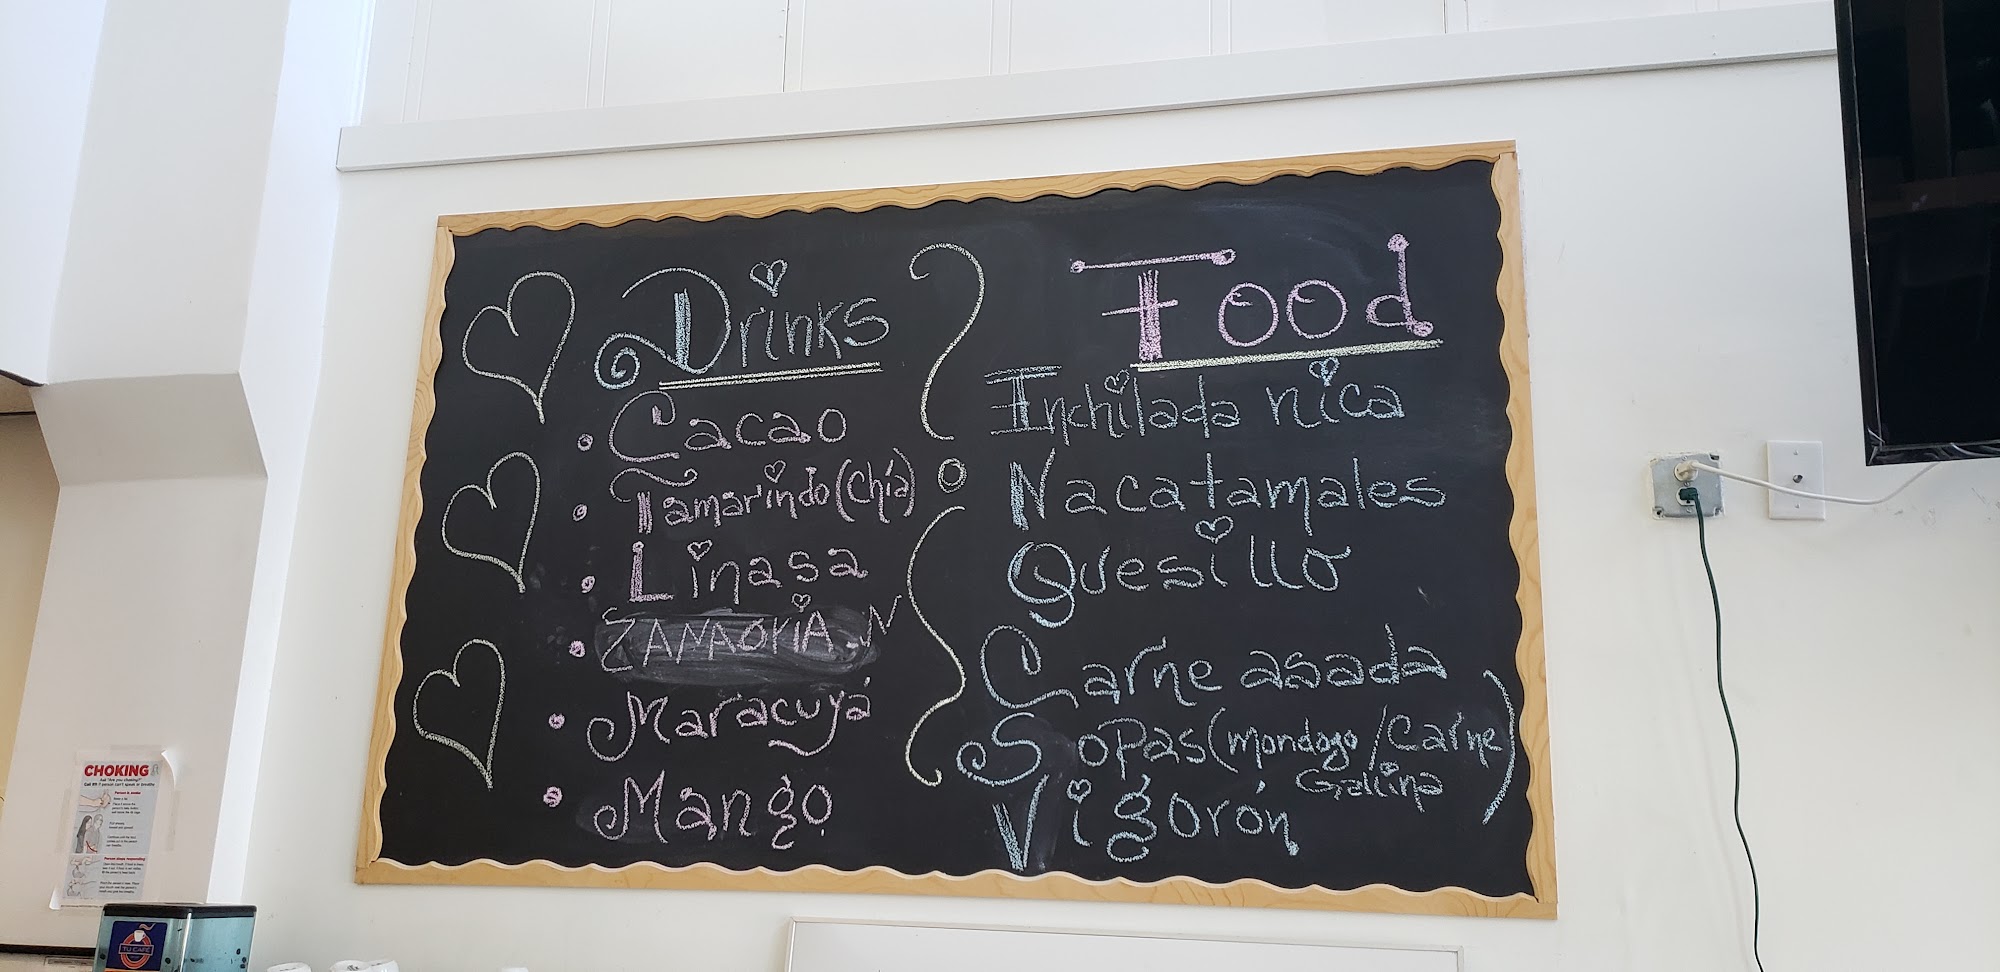 Drinks
Cacao
Tamarindo (Chía)
Linasa
ZANAORIA N
Maracuyá
Mango
Food
Inchilada nica
Nacatamales
Quesillo
Carne asada
Sopas (mondogo / Carne
Gallina)
Vigorón
CHOKING
TU CAFÉ